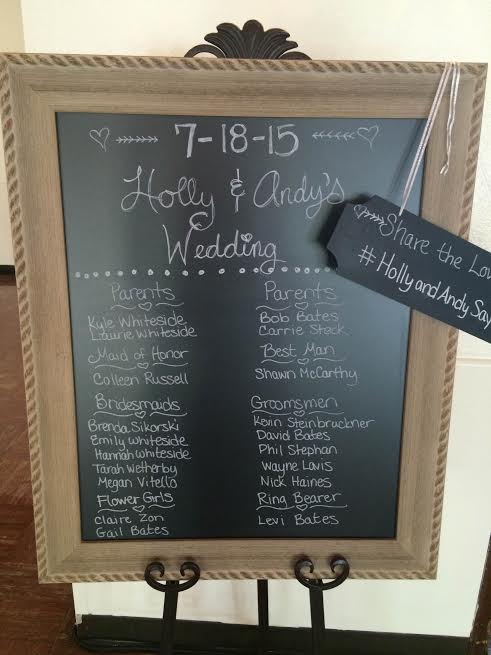 7-18-15
Holly & Andy's
Wedding
Parents
Kyle Whiteside
Laurie Whiteside
Maid of Honor
Colleen Russell
Bridesmaids
Brenda Sikorski
Emily Whiteside
Hannah Whiteside
Tarah Wetherby
Megan Vitello
Flower Girls
Claire Zon
Gail Bates
Parents
Bob Bates
Carrie Steck
Best Man
Shawn McCarthy
Groomsmen
Kevin Steinbruckner
David Bates
Phil Stephan
Wayne Lavis
Nick Haines
Ring Bearer
Levi Bates
Share the Lov
#HollyandAndySay